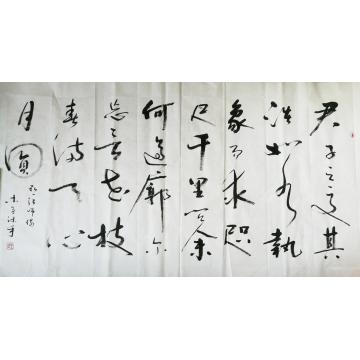 君子之交其
淡如水執
象而求咫
尺千里问余
何適廓尔
忘言花枝
春满天心
月圓
弘一法师偈